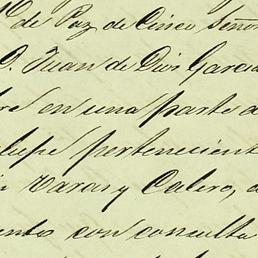 de Paz de Cinco Señor
D. Juan de Dios Garcia
en una parte
pertenecient
Varas y Calero,
con consulta